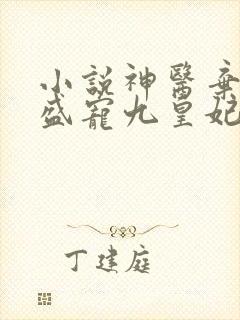 小說神醫棄
盛寵九皇妃
丁建庭